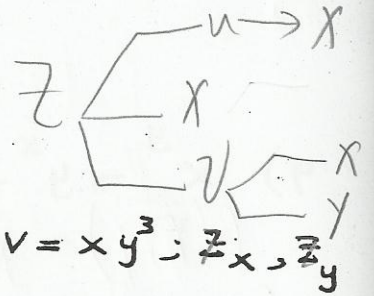 u → x
z x
v x
y
v = xy³; z_x, z_y